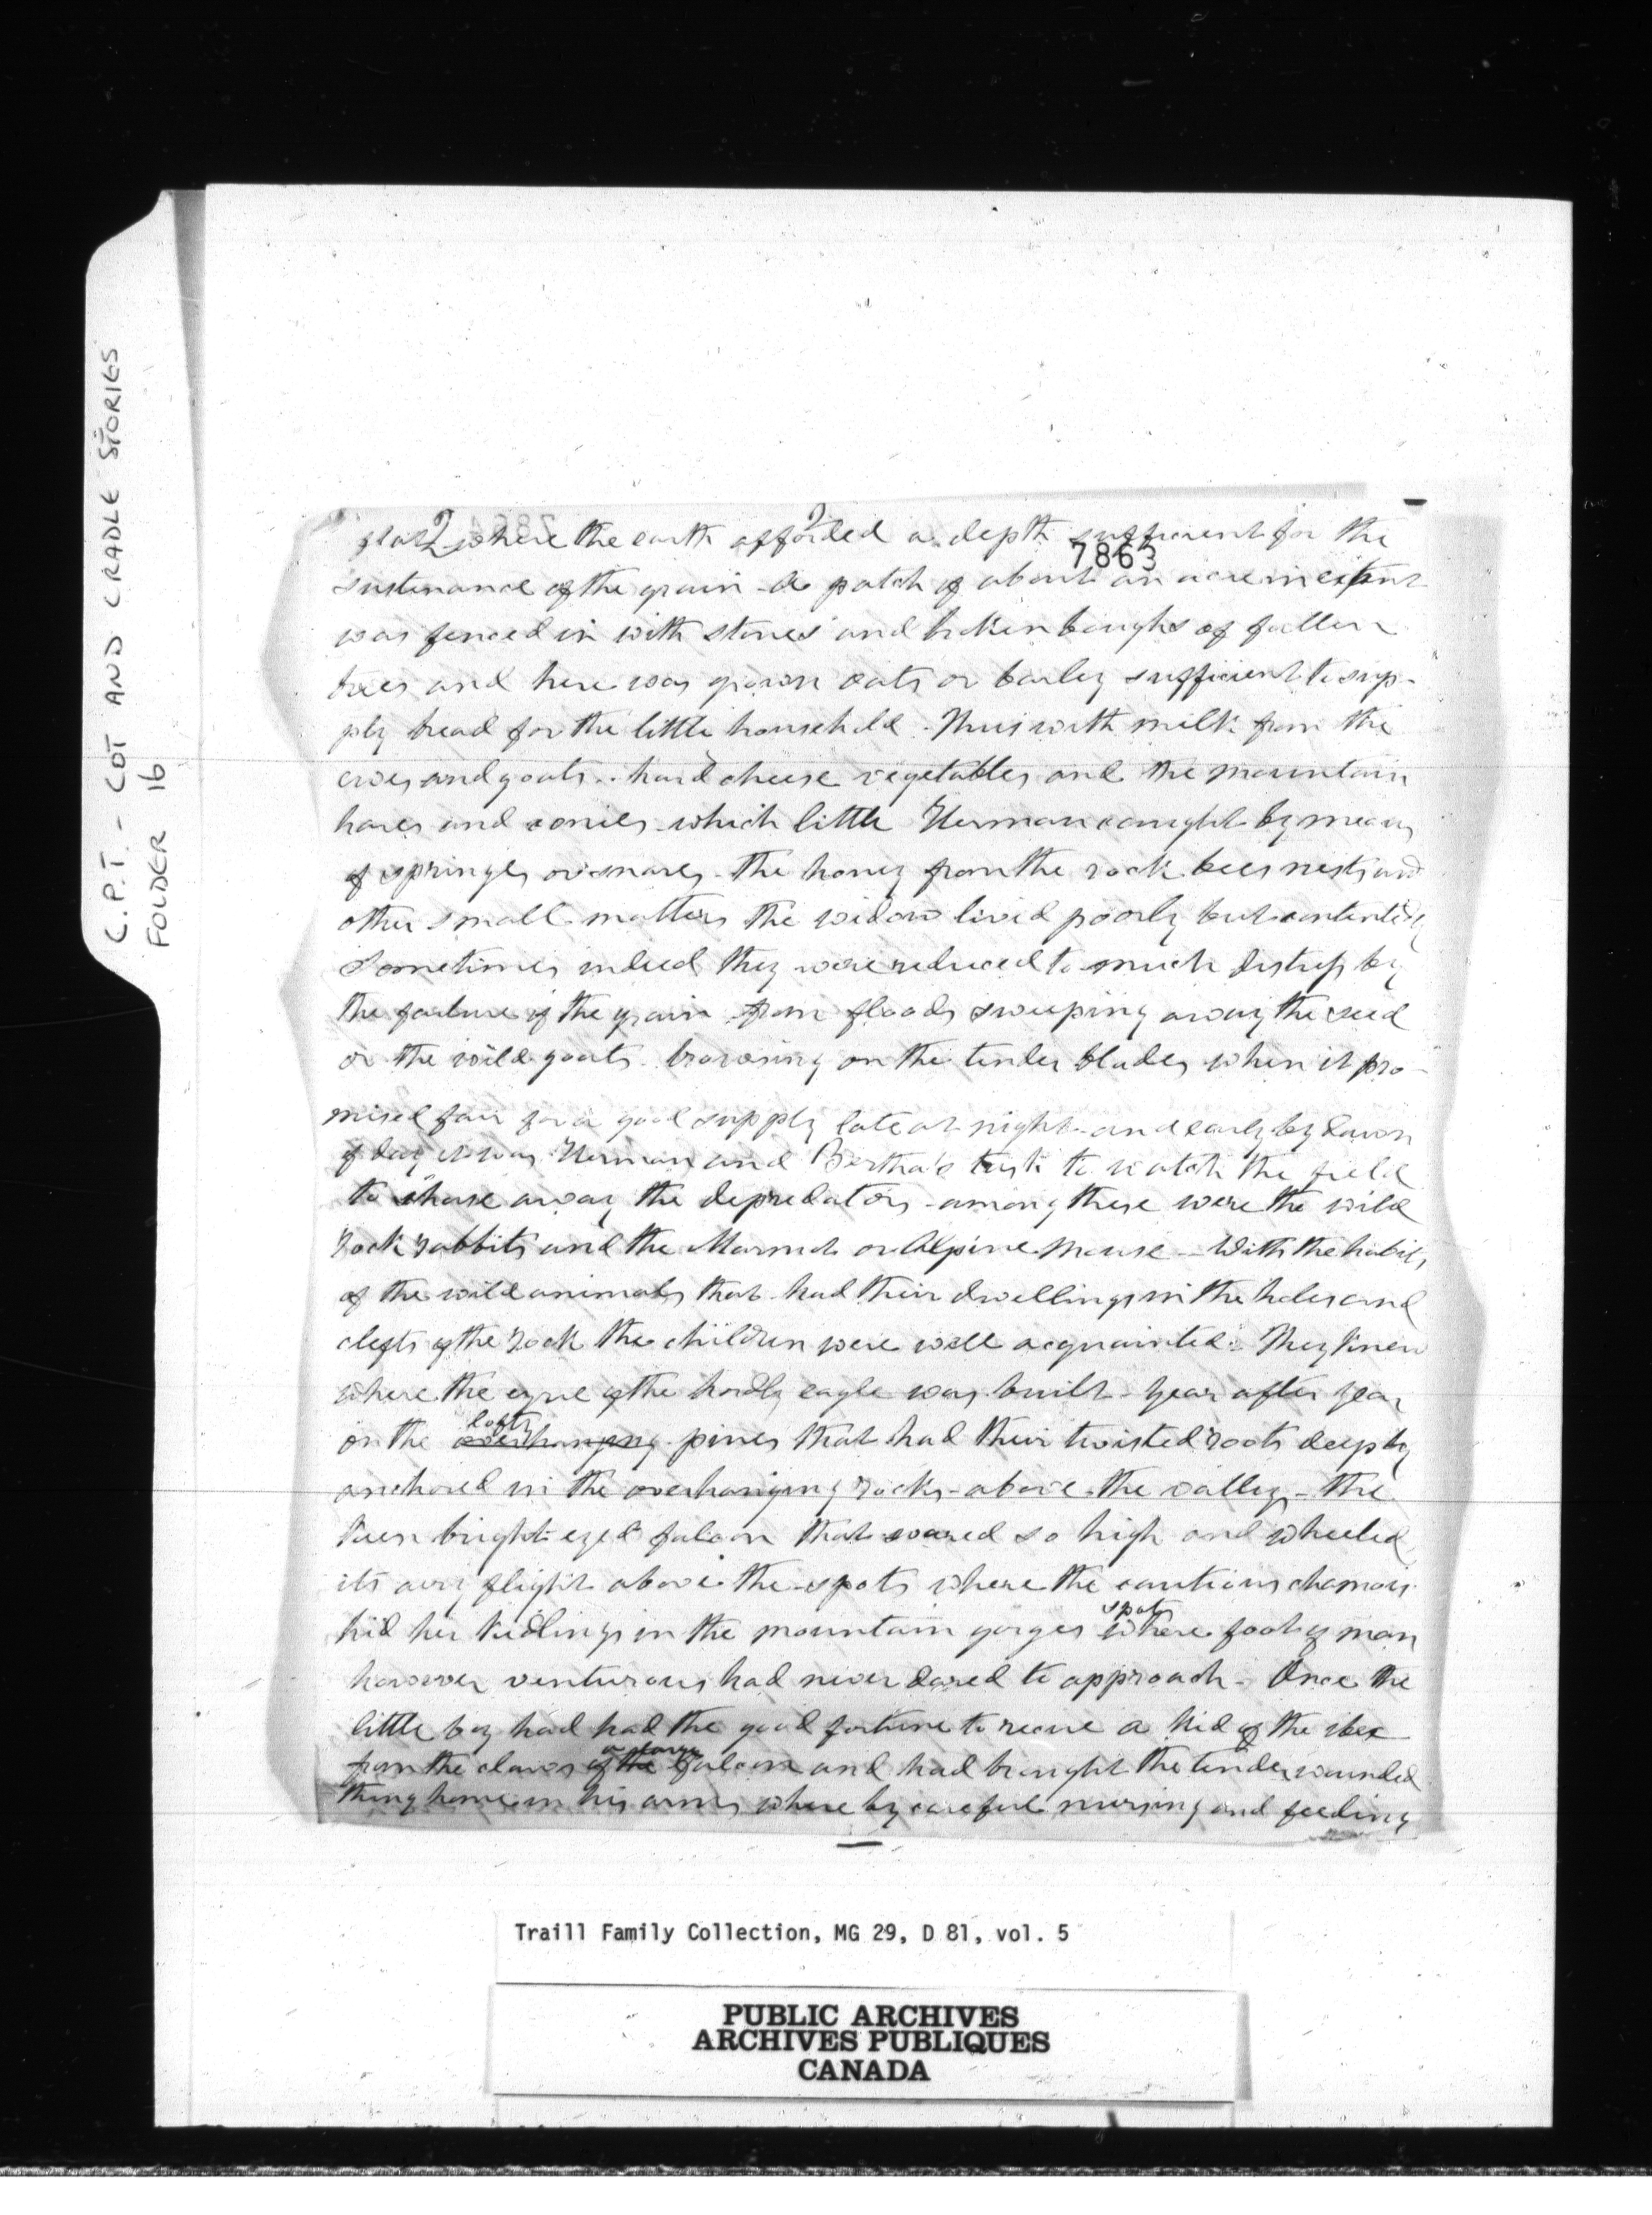 C.P.T. - COT AND CRADLE STORIES
FOLDER 16
2 2
where the earth afforded a depth sufficient for the
7863
sustenance of the grain - a patch of about an acre in extent
was fenced in with stones and broken boughs of fallen
trees and here was grown oats or barley sufficient to sup-
ply bread for the little household. Thus with milk from the
ewes and goats. hard cheese vegetables and the mountain
hares and conies which little Herman caught by means
of springes or snares - the honey from the rock bees nests and
other small matters the widow lived poorly but contentedly
Sometimes indeed they were reduced to much distress by
the failure of the grain from floods sweeping away the seed
or the wild goats browsing on the tender blades when it pro-
mised fair for a good supply late at night - and early by dawn
of day it was Herman and Bertha's task to watch the field
to chase away the depredators - among these were the wild
rock rabbits and the Marmot or Alpine Mouse - With the habits
of the wild animals that had their dwellings in the holes and
clefts of the rock the children were well acquainted. They knew
where the eyrie of the lordly eagle was built - year after year
lofty
on the overhanging pines that had their twisted roots deeply
anchored in the overhanging rocks - above the valley - the
keen bright eyed falcon that soared so high and wheeled
its airy flight above the spots where the cautious chamois
spots
hid her kidlings in the mountain gorges where foot of man
however venturous had never dared to approach - Once the
little boy had had the good fortune to rescue a kid of the ibex
a large
from the claws of the falcon and had brought the tender wounded
thing home in his arms where by careful nursing and feeding
Traill Family Collection, MG 29, D 81, vol. 5
PUBLIC ARCHIVES
ARCHIVES PUBLIQUES
CANADA